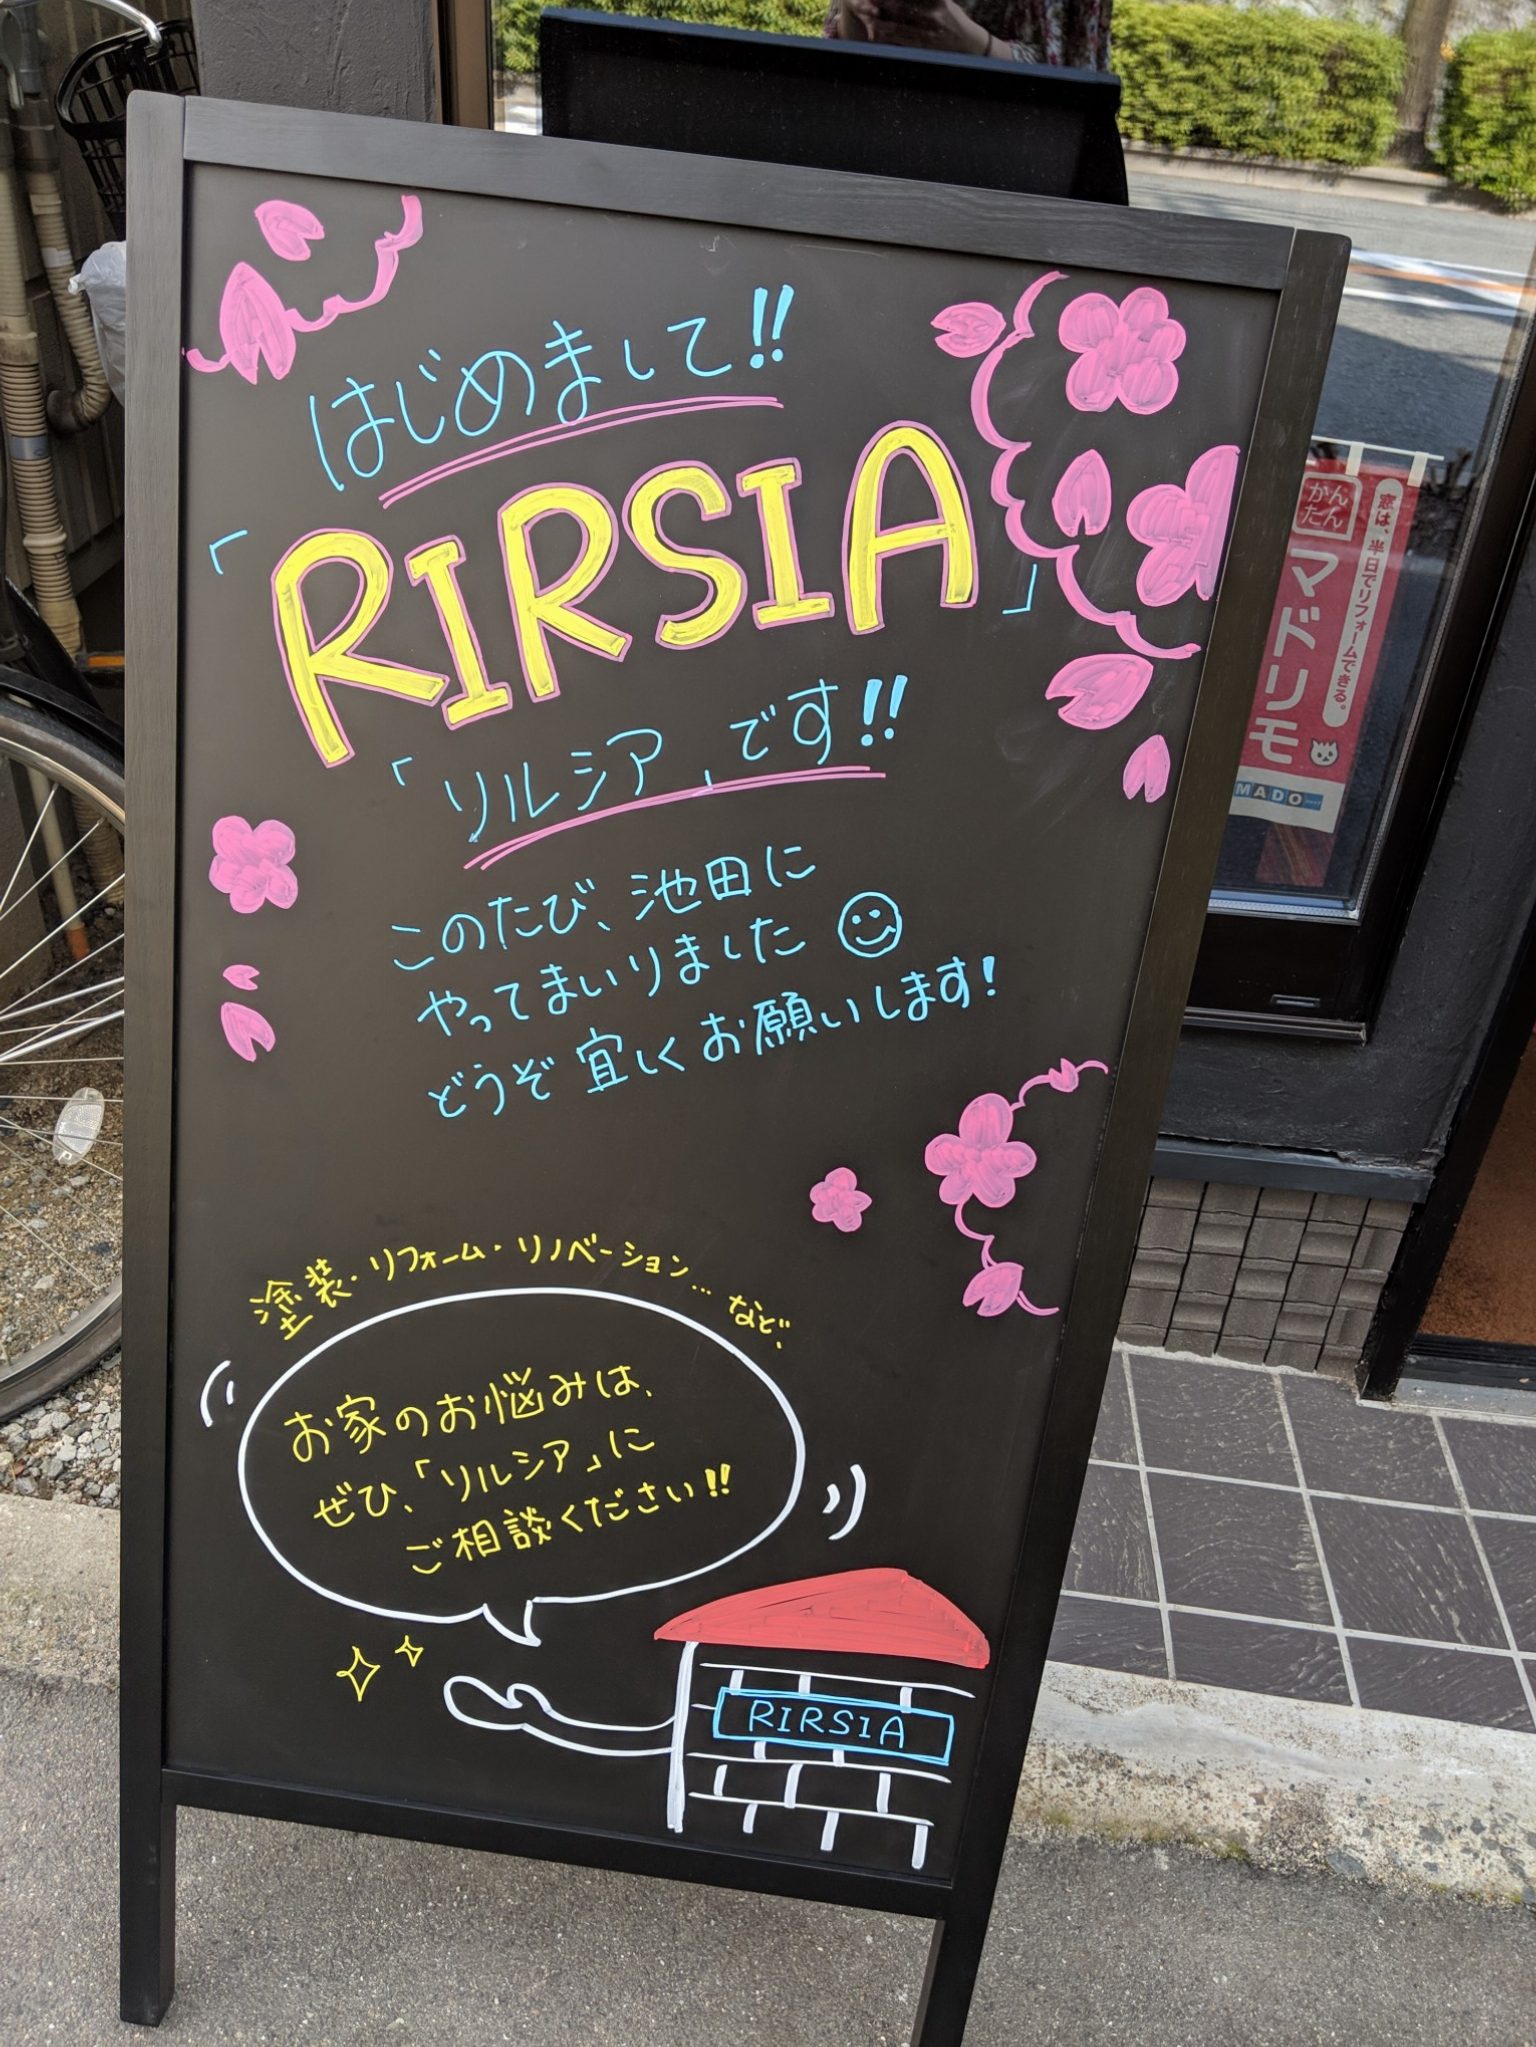 はじめまして!!
「RIRSIA」
「リルシア」です!!
このたび、池田に
やってまいりました
どうぞ宜しくお願いします!
塗装・リフォーム・リノベーション…など、
お家のお悩みは、
ぜひ、「リルシア」に
ご相談ください!!
RIRSIA
かん
たん
マドリモ
窓は、半日でリフォームできる。
MADO